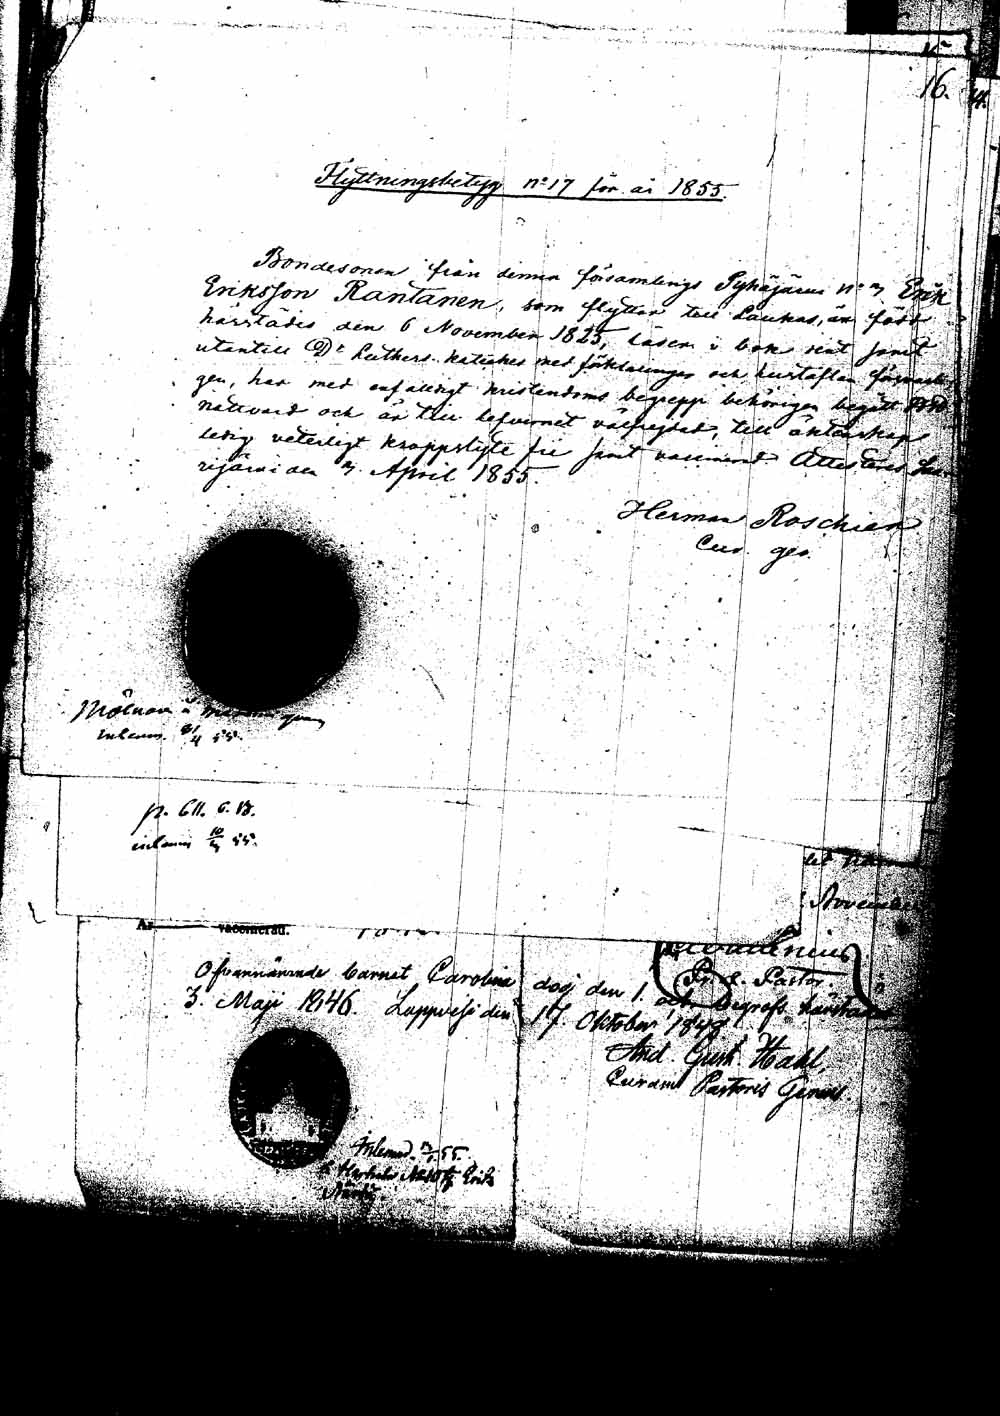 16.
Flyttningsbetyg No 17 för år 1855.
Bondesonen från denna församlings Pyhäjärvi No 7 Erik
Eriksson Rantanen, som flyttar till Laukas, är född
härstädes den 6 November 1825, läser i bok rent samt
utantill Dr Luthers kateches med förklaringar och hustaflan
gen, har med enfaldigt kristendoms begrepp behörigen begått HHrs
nattvard och är till lefvernet välfrejdad, till äktenskap
ledig veterligt kroppslyte fri samt vaccinerad. Attesteras
rijärvi den 7 April 1855.
Herman Roschier
Cur. ger.
inlemn. 4 55.
p. 611. 6. 13.
inlemn 10/5 55.
November
År vaccinerad.
Ofvannämnde barnet Carolina dog den 1. och begrofs härstädes
3. Maji 1846. Lappvesi den 17. Oktober 1848
Pr. e. Pastor.
And. Gust. Hahl,
Curam Pastoris Gerens.
Inlemnd. 55.
Erik